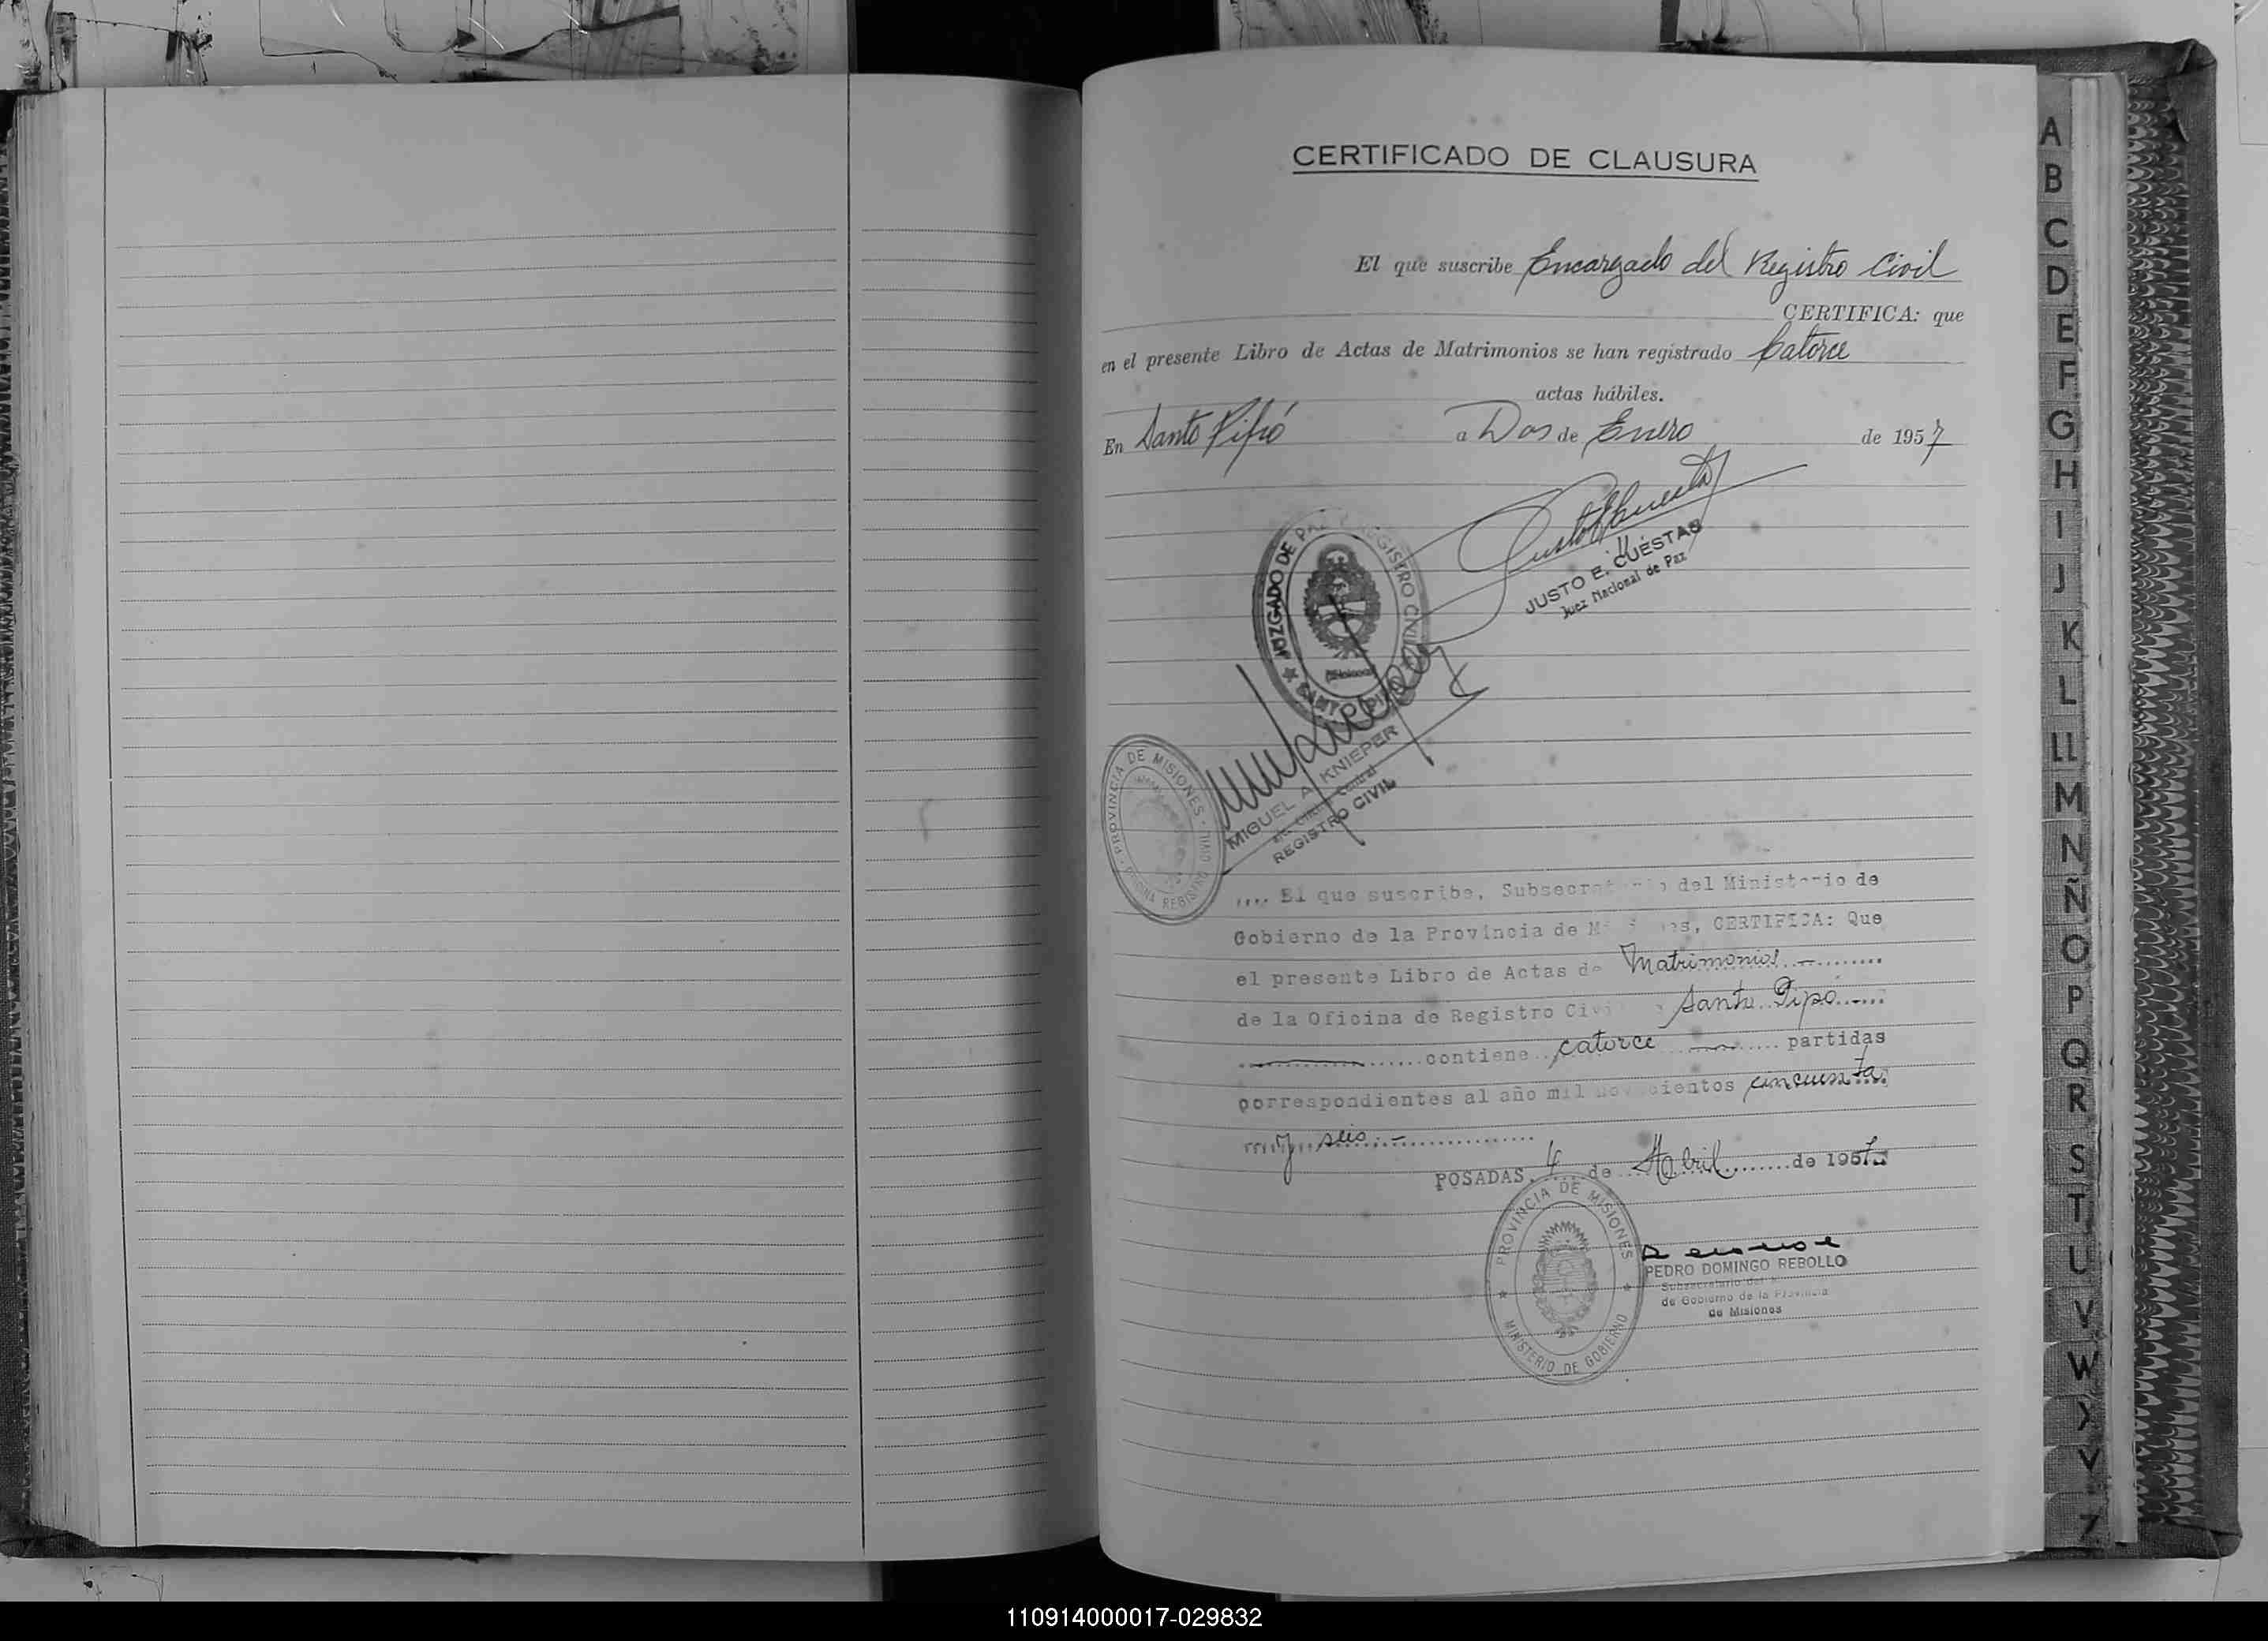 CERTIFICADO DE CLAUSURA
El que suscribe Encargado del Registro Civil
CERTIFICA: que
en el presente Libro de Actas de Matrimonios se han registrado Catorce
actas hábiles.
En Santo Pipó a Dos de Enero de 1957
JUZGADO DE PAZ Y REGISTRO CIVIL
SANTO PIPO
JUSTO E. CUESTAS
Juez Nacional de Paz
PROVINCIA DE MISIONES
MIGUEL A. KNIEPER
REGISTRO CIVIL
.... El que suscribe, Subsecretario del Ministerio de
Gobierno de la Provincia de Misiones, CERTIFICA: Que
el presente Libro de Actas de Matrimonios
de la Oficina de Registro Civil Santo Pipó
contiene catorce partidas
correspondientes al año mil novecientos cincuenta
y seis.-
POSADAS, 4 de Abril de 1957
PROVINCIA DE MISIONES
MINISTERIO DE GOBIERNO
PEDRO DOMINGO REBOLLO
Subsecretario del
de Gobierno de la Provincia
de Misiones
A
B
C
D
E
F
G
H
I
J
K
L
Ll
M
N
Ñ
O
P
Q
R
S
T
U
V
W
X
Y
Z
110914000017-029832